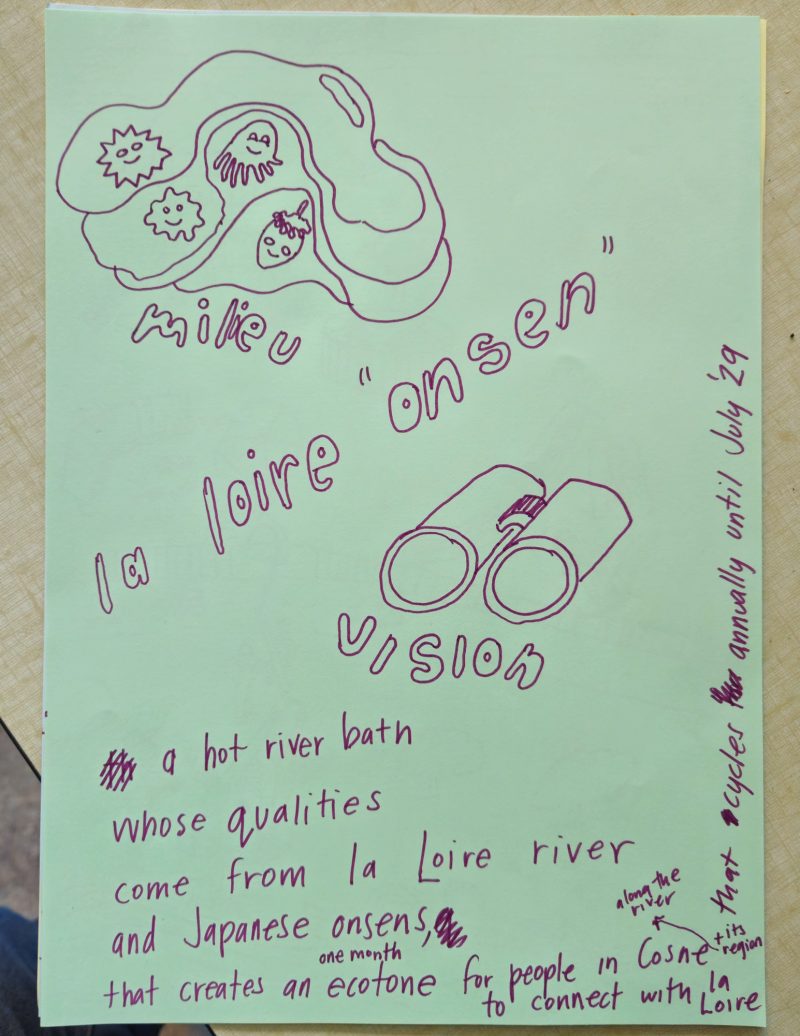 milieu
la loire "onsen"
vision
a hot river bath
whose qualities
come from la Loire river
and Japanese onsens,
that creates an one month ecotone for people in Cosne + its region
along the river
to connect with la Loire
that cycles annually until July '29